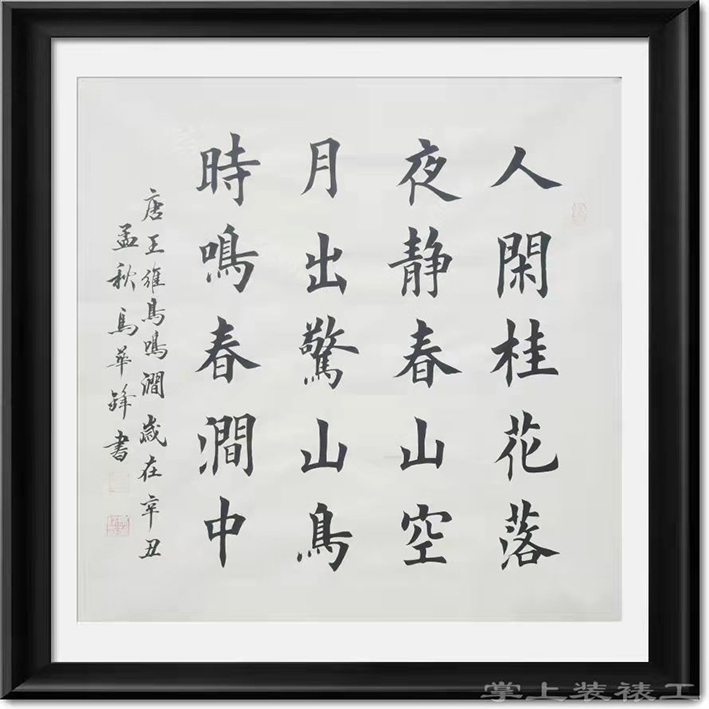 人閑桂花落
夜静春山空
月出驚山鳥
時鳴春澗中
唐王維鳥鳴澗歲在辛丑
孟秋馬華鋒書
掌上装裱工